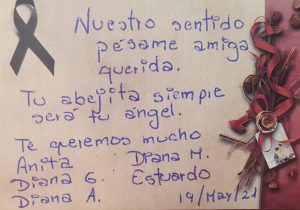 Nuestro sentido
pésame amiga
querida.
Tu abejita siempre
será tu ángel.
Te queremos mucho
Anita Diana M.
Diana G. Estuardo
Diana A. 19/May/21